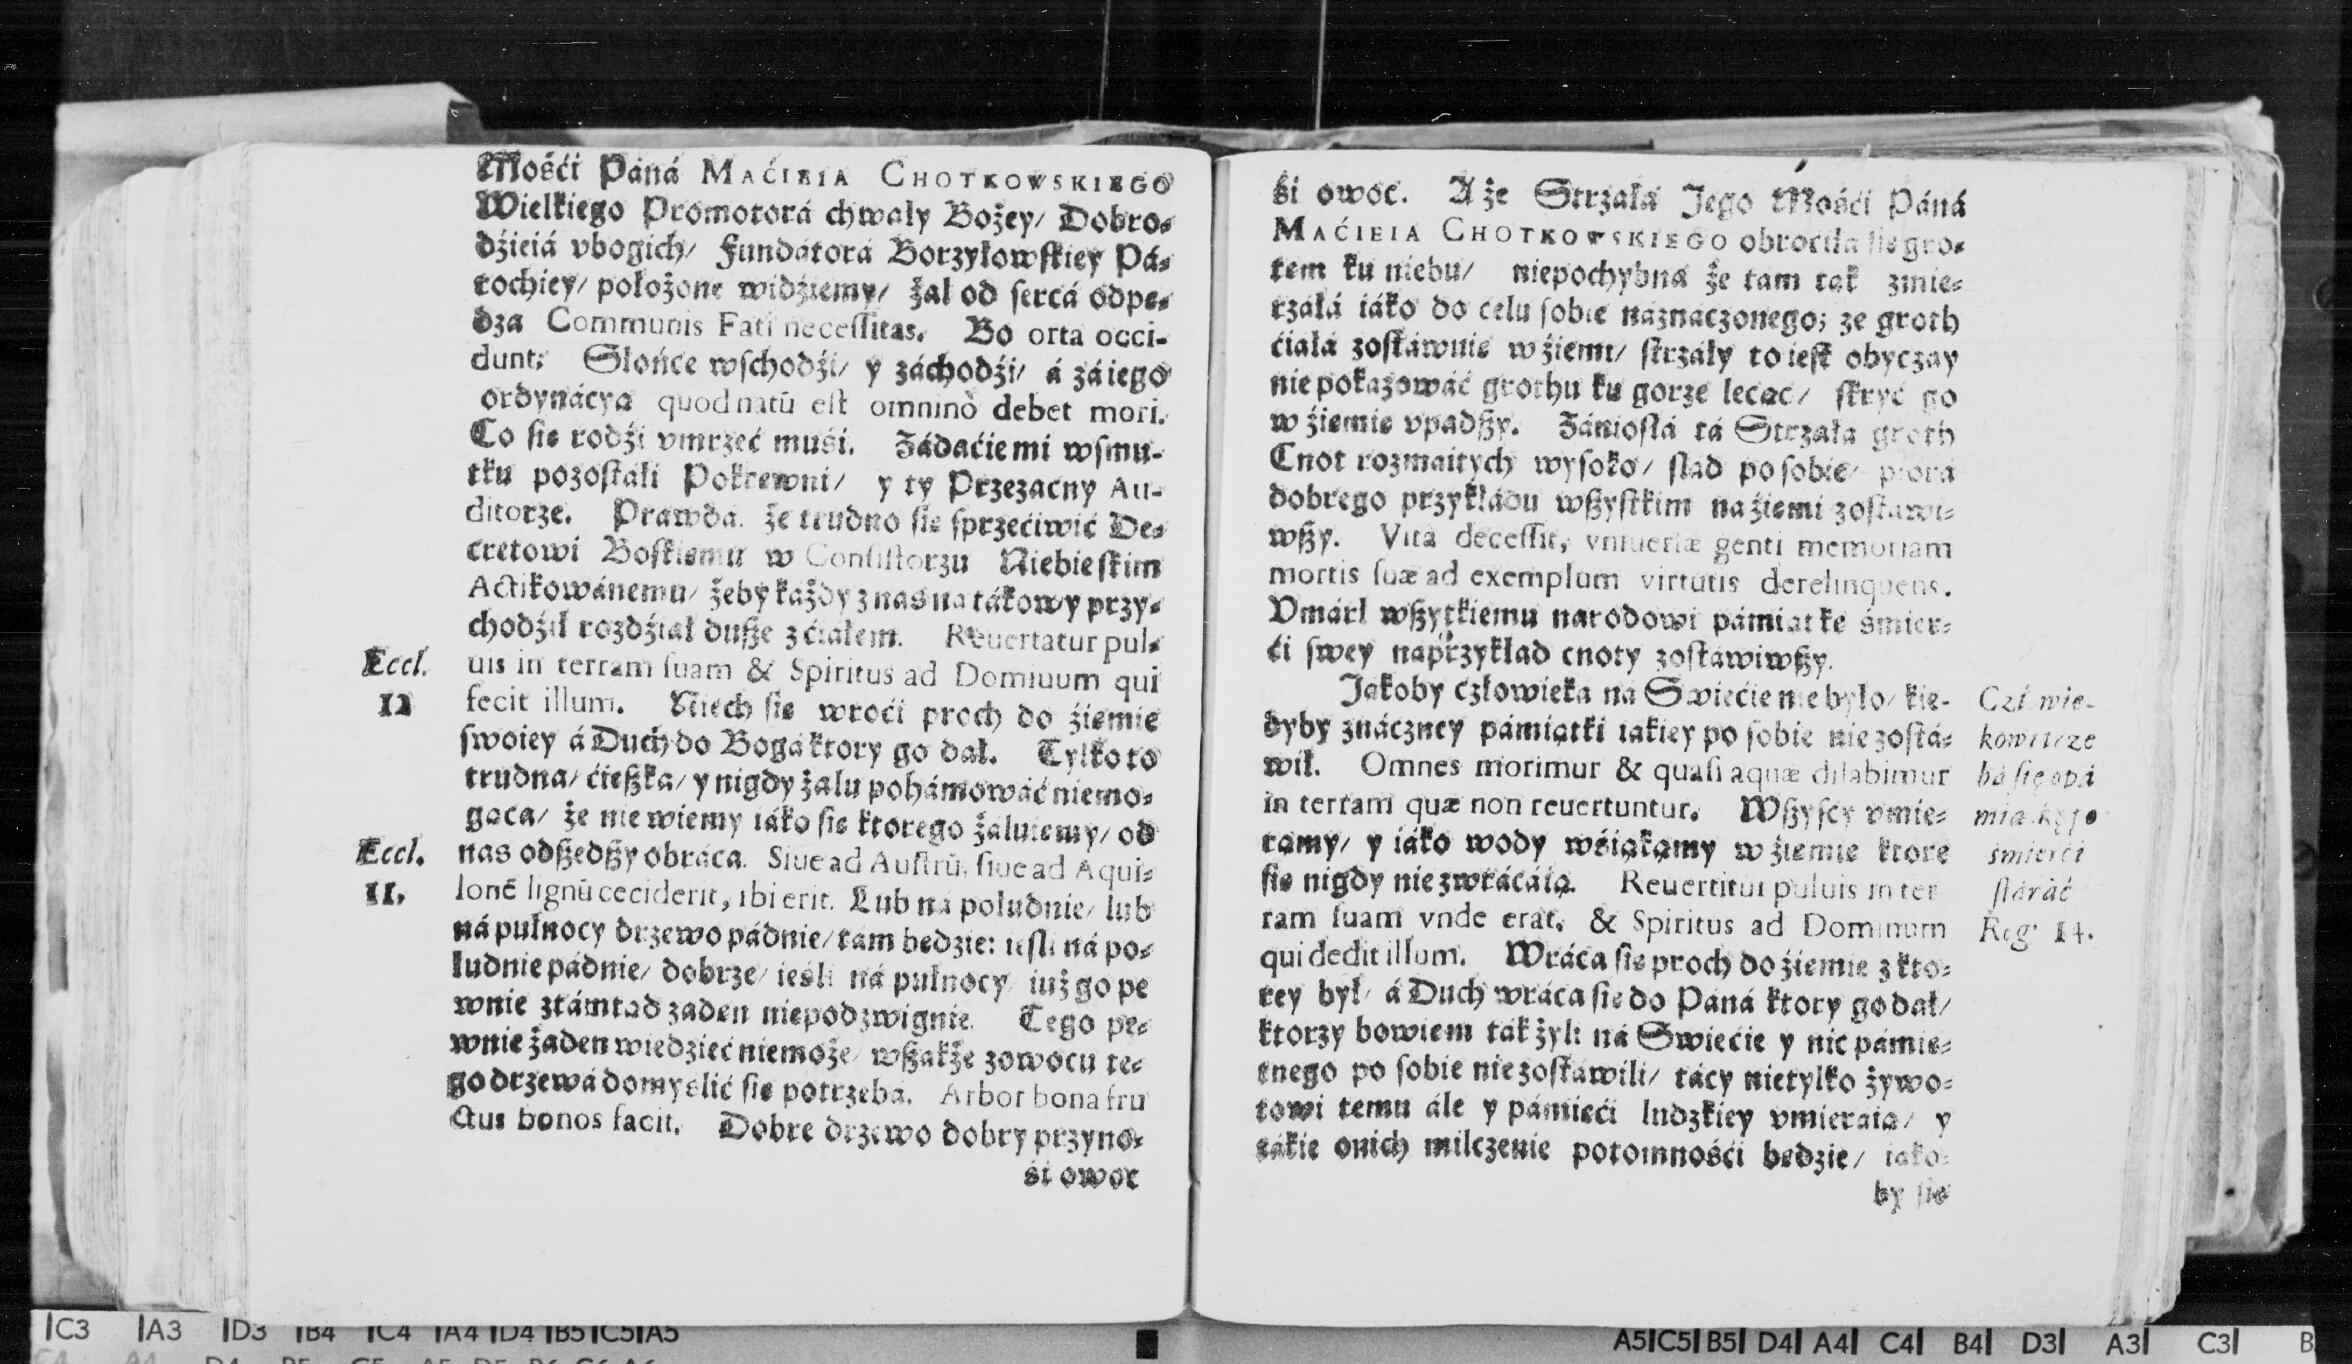 Mośći Páná MAĆIEIA CHOTKOWSKIEGO
Wielkiego Promotorá chwały Bożey/ Dobro-
dźieiá vbogich/ Fundatorá Borzykowſkiey Pá-
rochiey/ położone widźiemy/ żal od ſercá odpe-
dza Communis Fati neceſſitas. Bo orta occi-
dunt: Słońce wſchodźi/ y záchodźi/ á zá iego
ordynácya quod natũ eſt omninò debet mori.
Co ſie rodźi vmrzeć muśi. Żádaćie mi wſmu-
tku pozoſtali Pokrewni/ y ty Przezacny Au-
ditorze. Prawdá. że trudno ſie ſprzećiwić De-
cretowi Boſkiemu w Conſiſtorzu Niebieſkim
Actikowánemu/ żeby każdy z nas na tákowy przy-
chodźił rozdźiał duſze z ćiałem. Reuertatur pul-
uis in terram ſuam & Spiritus ad Domiuum qui
fecit illum. Niech ſie wroći proch do źiemie
ſwoiey á Duch do Bogá ktory go dał. Tylko to
trudna/ ćieſzka/ y nigdy żalu pohámowáć niemo-
gaca/ że nie wiemy iáko ſie ktorego żałuiemy/ od
nas odſzedſzy obráca. Siue ad Auſtrũ, ſiue ad Aqui-
lonẽ lignũ ceciderit, ibi erit. Lub ná południe/ lub
ná pułnocy drzewo pádnie/ tám bedzie: ieſli ná po-
łudnie pádnie/ dobrze/ ieśli ná pułnocy/ iuż go pe
wnie ztámtad zaden niepodzwignie. Tego pe-
wnie żaden wiedzieć niemoże/ wſzákże z owocu te-
go drzewá domyślić ſie potrzebá. Arbor bona fru
ctus bonos facit. Dobre drzewo dobry przyno-
śi owoc
Eccl.
12
Eccl.
11.
śi owoc. A że Strzałá Jego Mośći Páná
MAĆIEIA CHOTKOWSKIEGO obroćiła ſie gro-
tem ku niebu/ niepochybna że tam tak zmie-
rzáłá iáko do celu ſobie náznaczonego; ze groth
ćiáłá zoſtáwuie w źiemi/ ſtrzały to ieſt obyczay
nie pokázowáć grothu ku gorze lecac/ ſkryć go
w źiemie vpadſzy. Zánioſłá tá Strzałá groth
Cnot rozmaitych wyſoko/ ſlad po ſobie/ piorá
dobrego przykłádu wſzyſtkim na źiemi zoſtawi-
wſzy. Vita deceſſit, vniuerſæ genti memoriam
mortis ſuæ ad exemplum virtutis derelinquens.
Vmárł wſzytkiemu narodowi pámiatke śmier-
ći ſwey náprzykład cnoty zoſtáwiwſzy.
Jakoby człowieká ná Swiećie nie było/ kie-
dyby znáczney pámiątki iákiey po ſobie nie zoſtá-
wił. Omnes morimur & quaſi aquæ dilabimur
in terram quæ non reuertuntur. Wſzyſcy vmie-
ramy/ y iáko wody wśiąkamy w źiemie ktore
ſie nigdy nie zwrácáią. Reuertitur puluis in ter
ram ſuam vnde erat. & Spiritus ad Dominum
qui dedit illum. Wráca ſie proch do źiemie z kto-
rey był/ á Duch wráca ſie do Páná ktory go dał/
ktorzy bowiem ták żyli ná Swiećie y nic pámie-
tnego po ſobie nie zoſtáwili/ tácy nietylko żywo-
towi temu ále y pámieći ludzkiey vmieraią/ y
tákie o nich milczenie potomnośći bedzie/ iáko-
by ſie
śmierći
ſtáráć
Reg. 14.